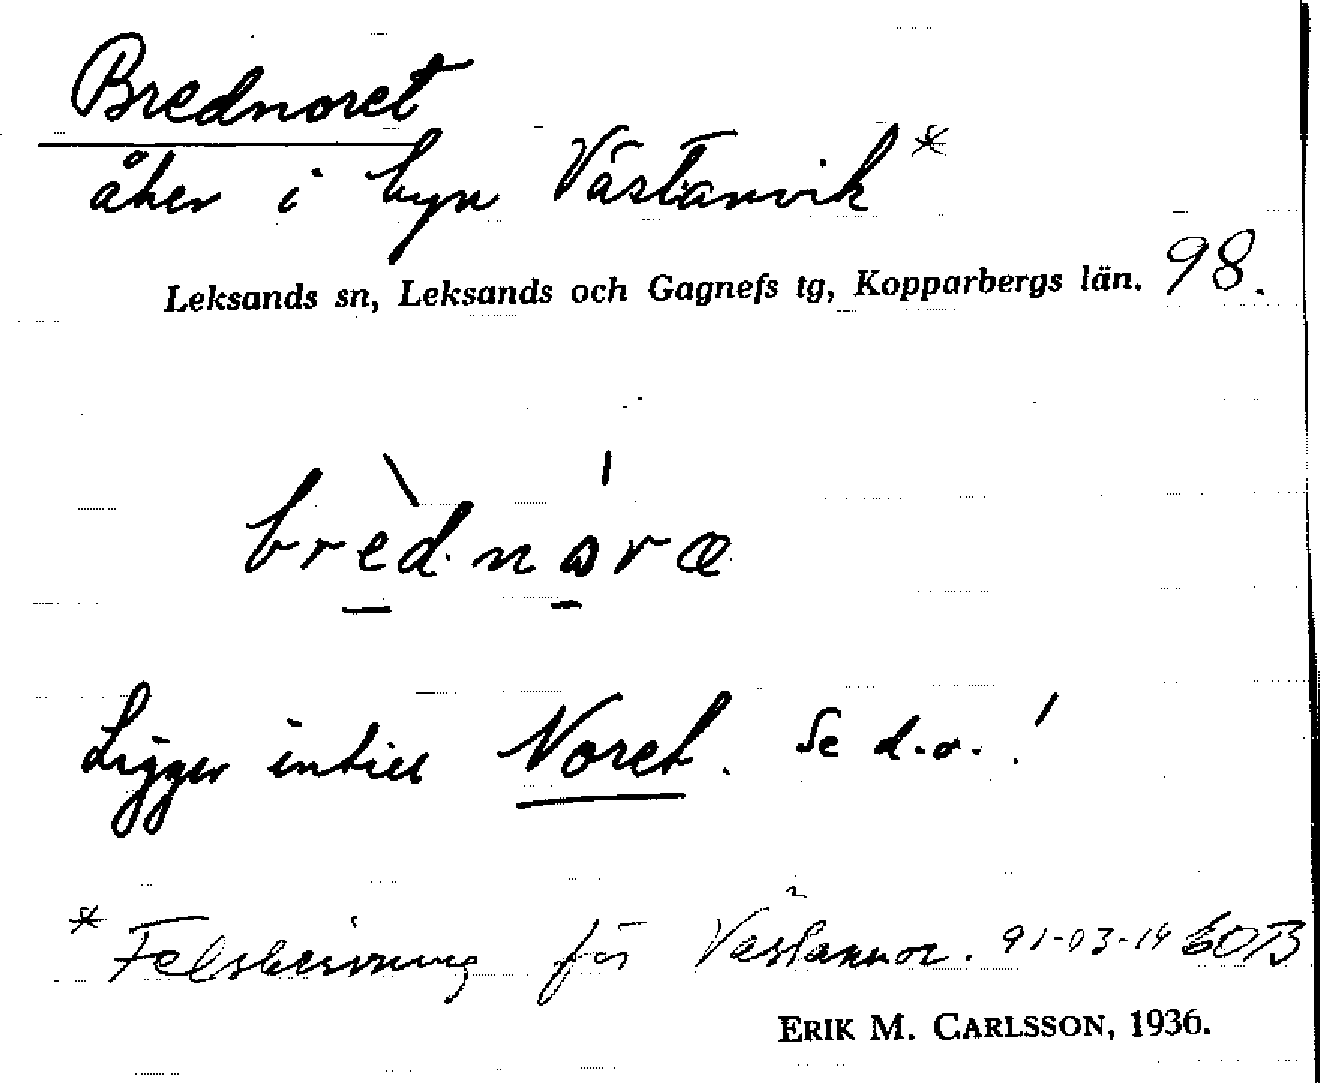 Brednoret
åker i byn Västanvik *
Leksands sn, Leksands och Gagnefs tg, Kopparbergs län. 98.
brèdnóræ
Ligger intill Noret. Se d.o.!
* Felskrivning för Västannor. 91-03-14 EOB
ERIK M. CARLSSON, 1936.